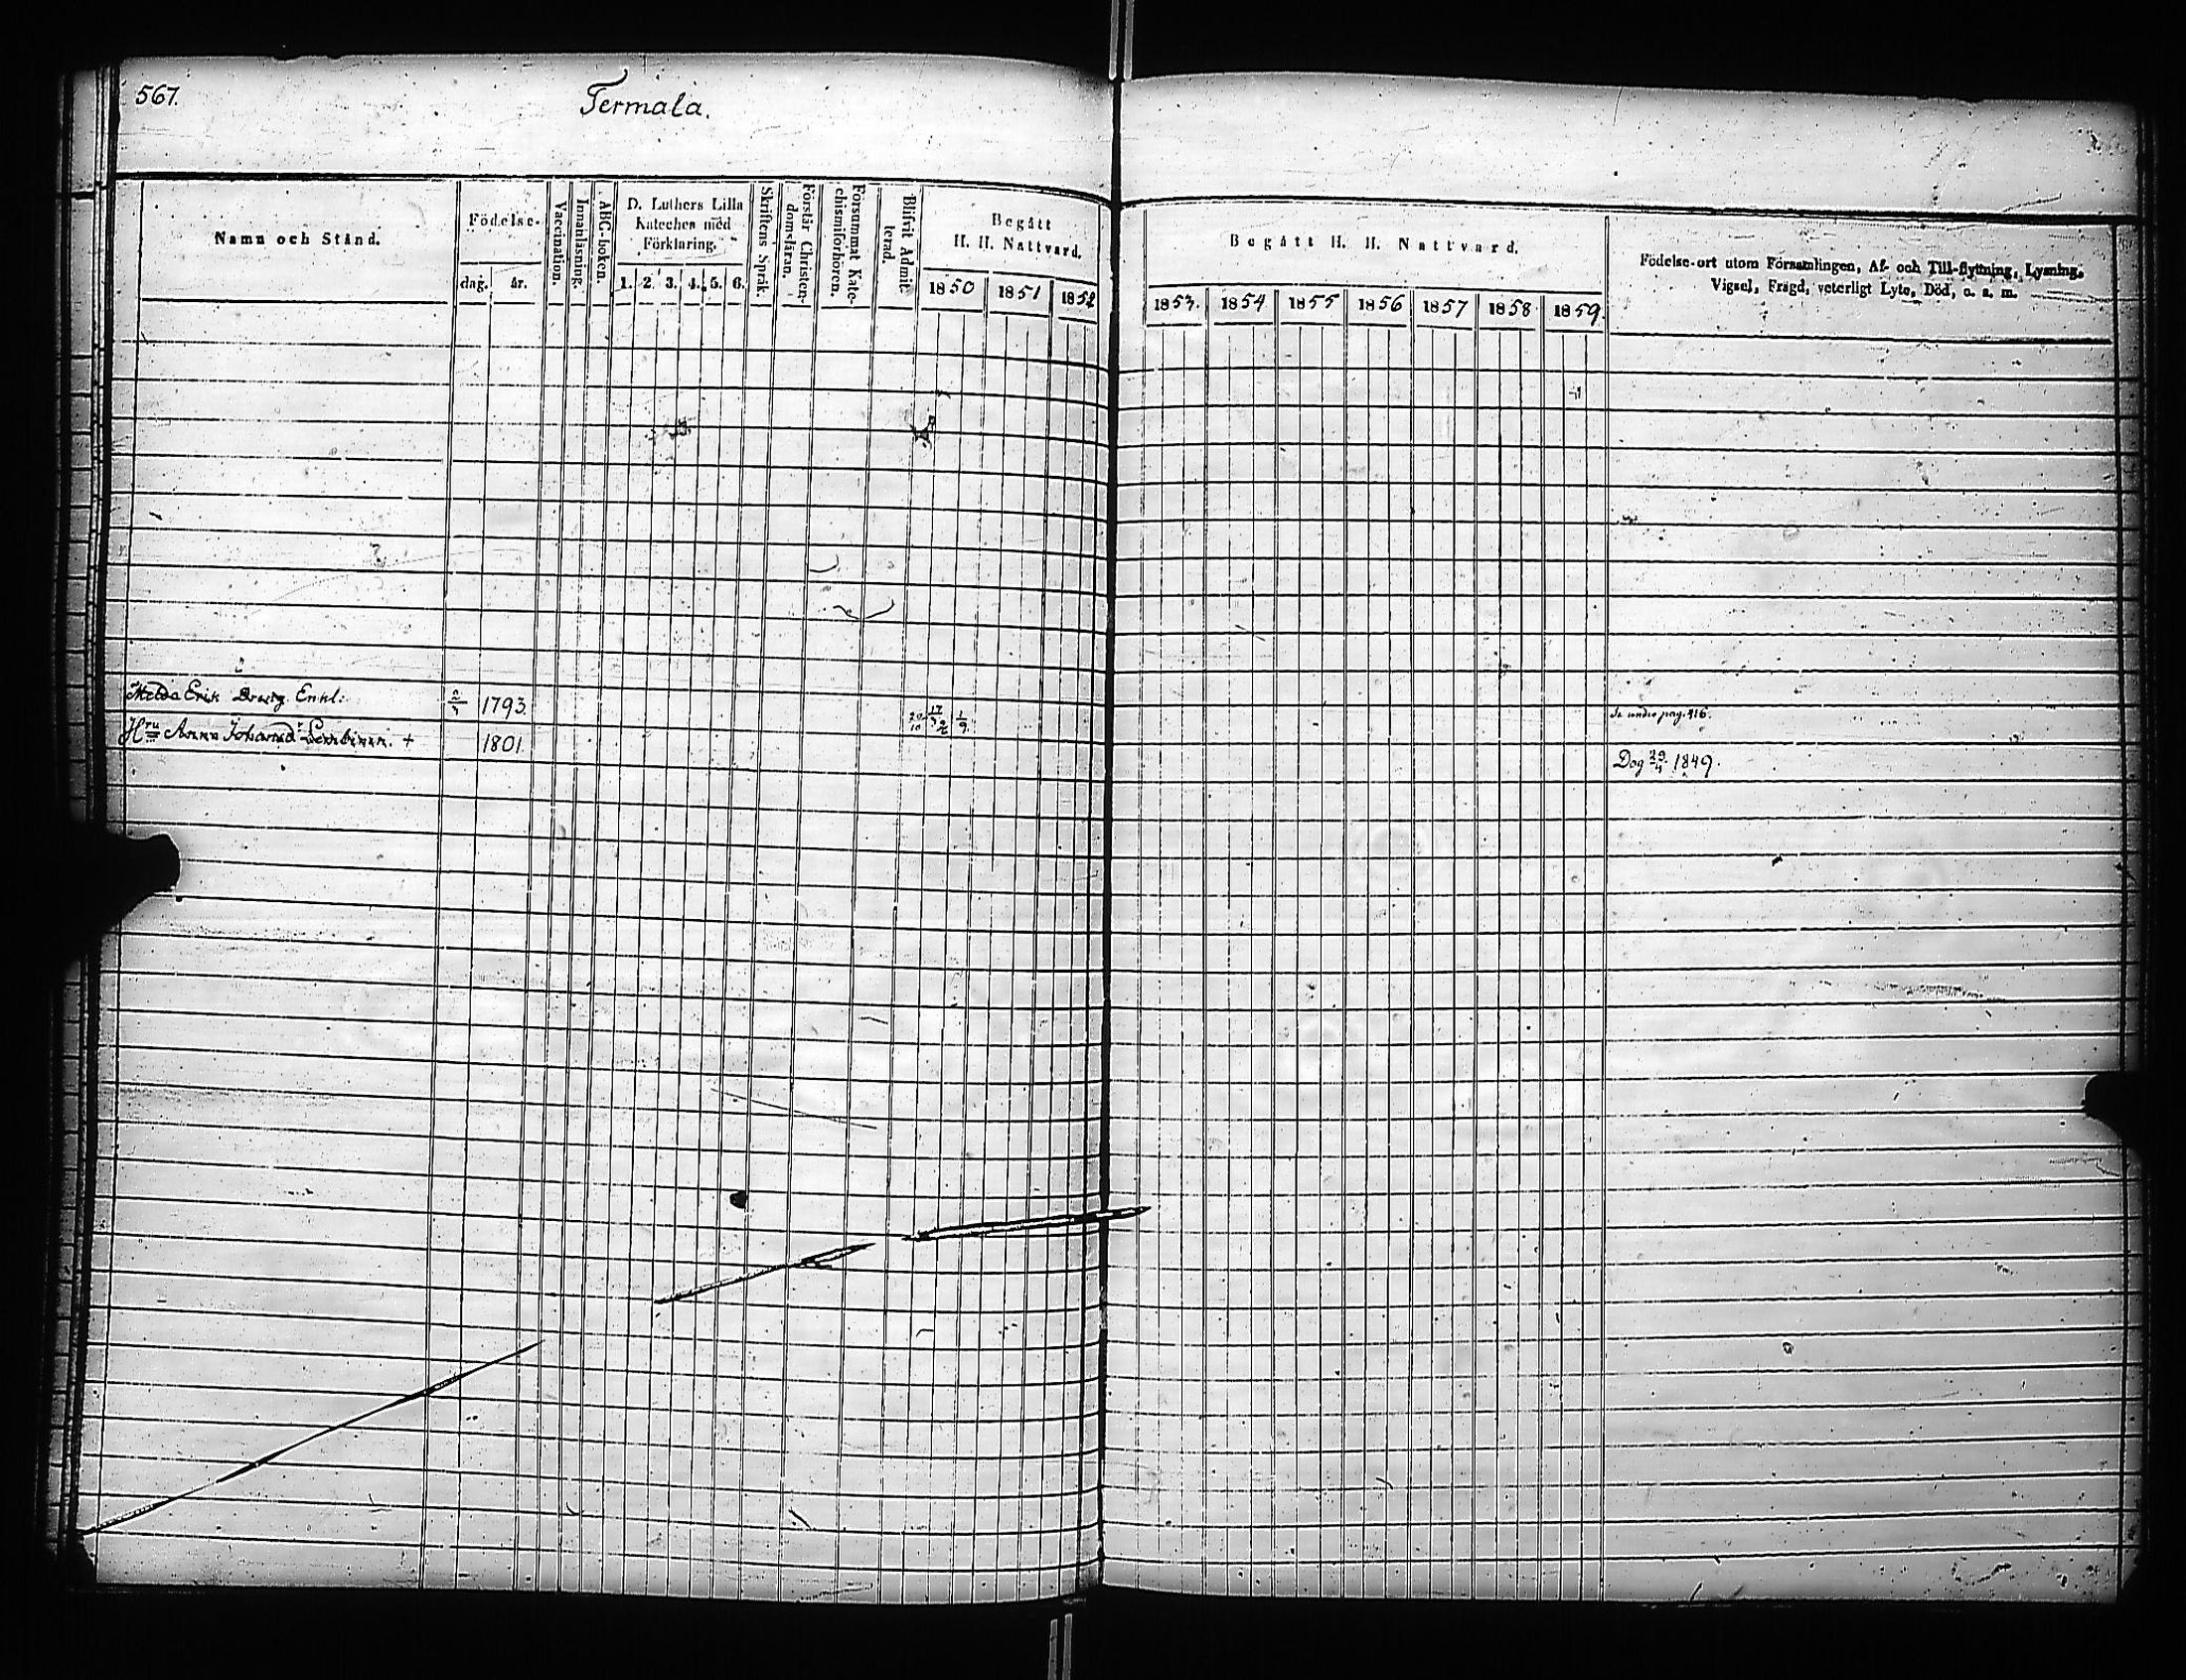 567.
Termala.
Namn och Stånd.
Födelse-
dag. år.
Vaccination.
Innanläsning.
ABC-boken.
D. Luthers Lilla
Kateches med
Förklaring.
1. 2. 3. 4. 5. 6.
Skriftens Språk.
Förstår Christen-
domsläran.
Försummat Kate-
chismiförhören.
Blifvit Admit-
terad.
Begått
H. H. Nattvard.
1850 1851 1852
Begått H. H. Nattvard.
1853. 1854 1855 1856 1857 1858 1859.
Födelse-ort utom Församlingen, Af- och Till-flyttning, Lysning,
Vigsel, Frägd, veterligt Lyte, Död, o. s. m.
Erik Enkl: 1793.
Hru Anna 1801
pag. 416.
Dog 29/4 1849.